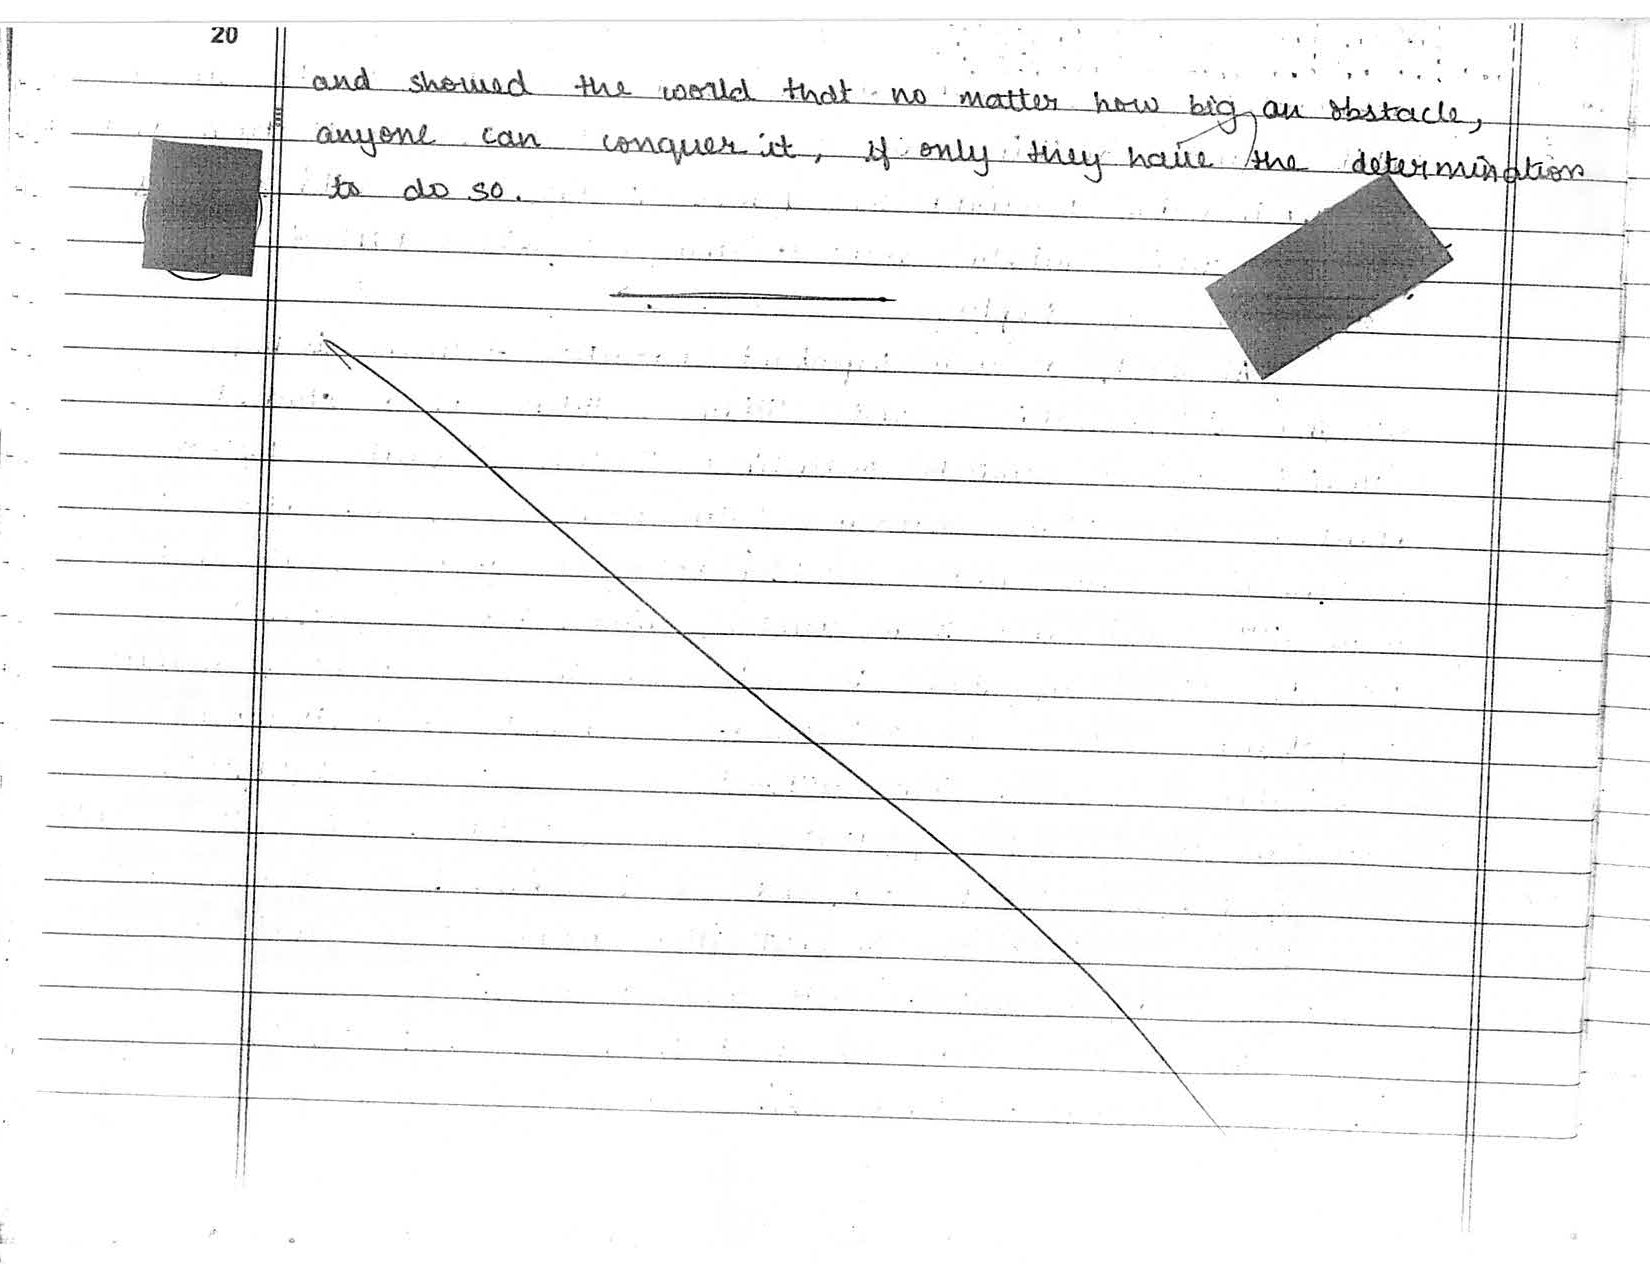 20
and showed the world that no matter how big an obstacle,
anyone can conquer it, if only they have the determination
to do so.